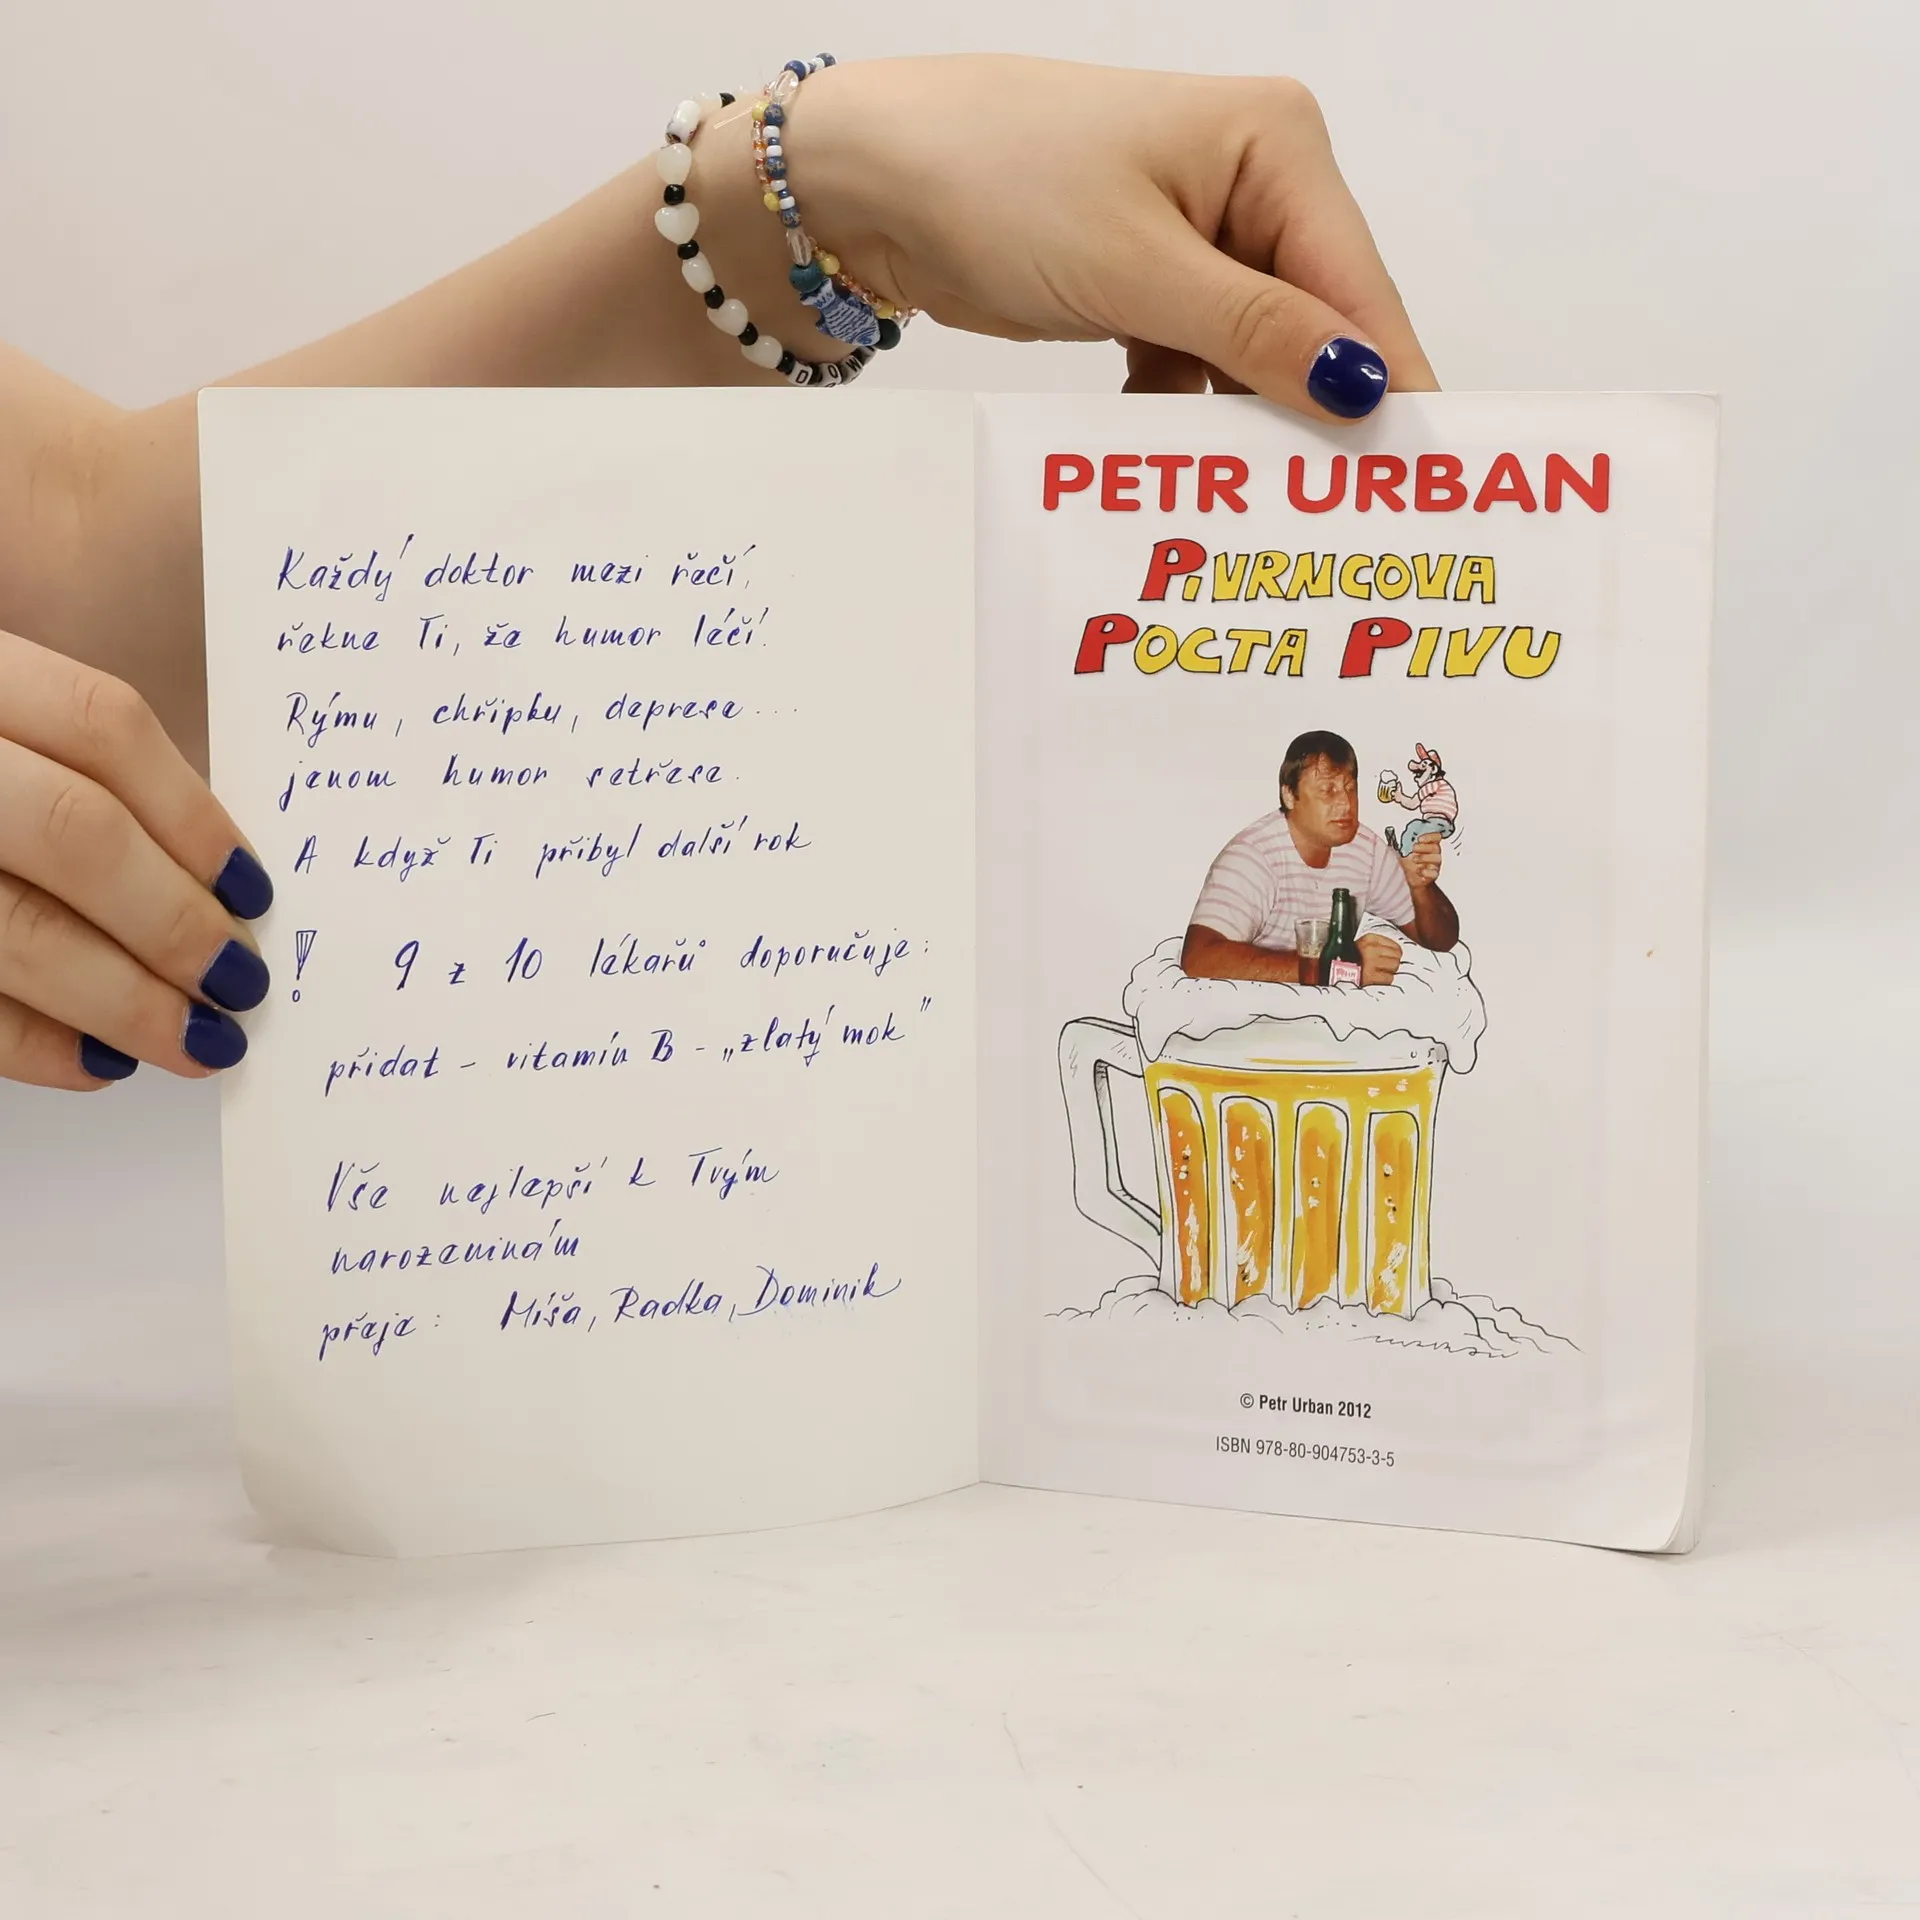 Každý doktor mezi řečí,
řekne Ti, že humor léčí.
Rýmu, chřipku, deprese...
jenom humor setřese.
A když Ti přibyl další rok
! 9 z 10 lékařů doporučuje:
přidat – vitamín B – „zlatý mok"
Vše nejlepší k Tvým
narozeninám
přeje: Míša, Radka, Dominik
PETR URBAN
PIVRNCOVA
POCTA PIVU
© Petr Urban 2012
ISBN 978-80-904753-3-5